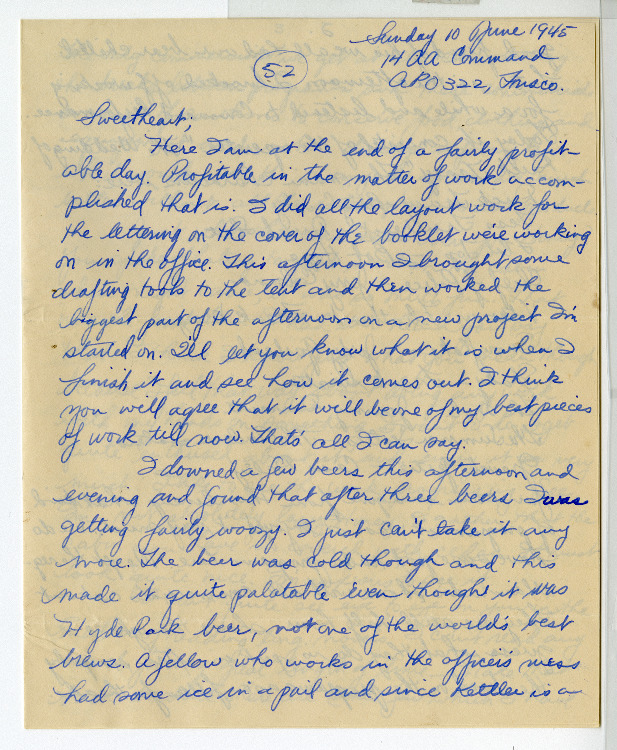 Sunday 10 June 1945
52
14 AA Command
APO 322, Frisco.
Sweetheart;
Here I am at the end of a fairly profit-
able day. Profitable in the matter of work accom-
plished that is. I did all the layout work for
the lettering on the cover of the booklet we're working
on in the office. This afternoon I brought some
drafting tools to the tent and then worked the
biggest part of the afternoon on a new project I'm
started on. I'll let you know what it is when I
finish it and see how it comes out. I think
you will agree that it will be one of my best pieces
of work till now. That's all I can say.
I downed a few beers this afternoon and
evening and found that after three beers I was
getting fairly woozy. I just can't take it any
more. The beer was cold though and this
made it quite palatable even though it was
Hyde Park beer, not one of the world's best
brews. A fellow who works in the officer's mess
had some ice in a pail and since Kettler is a